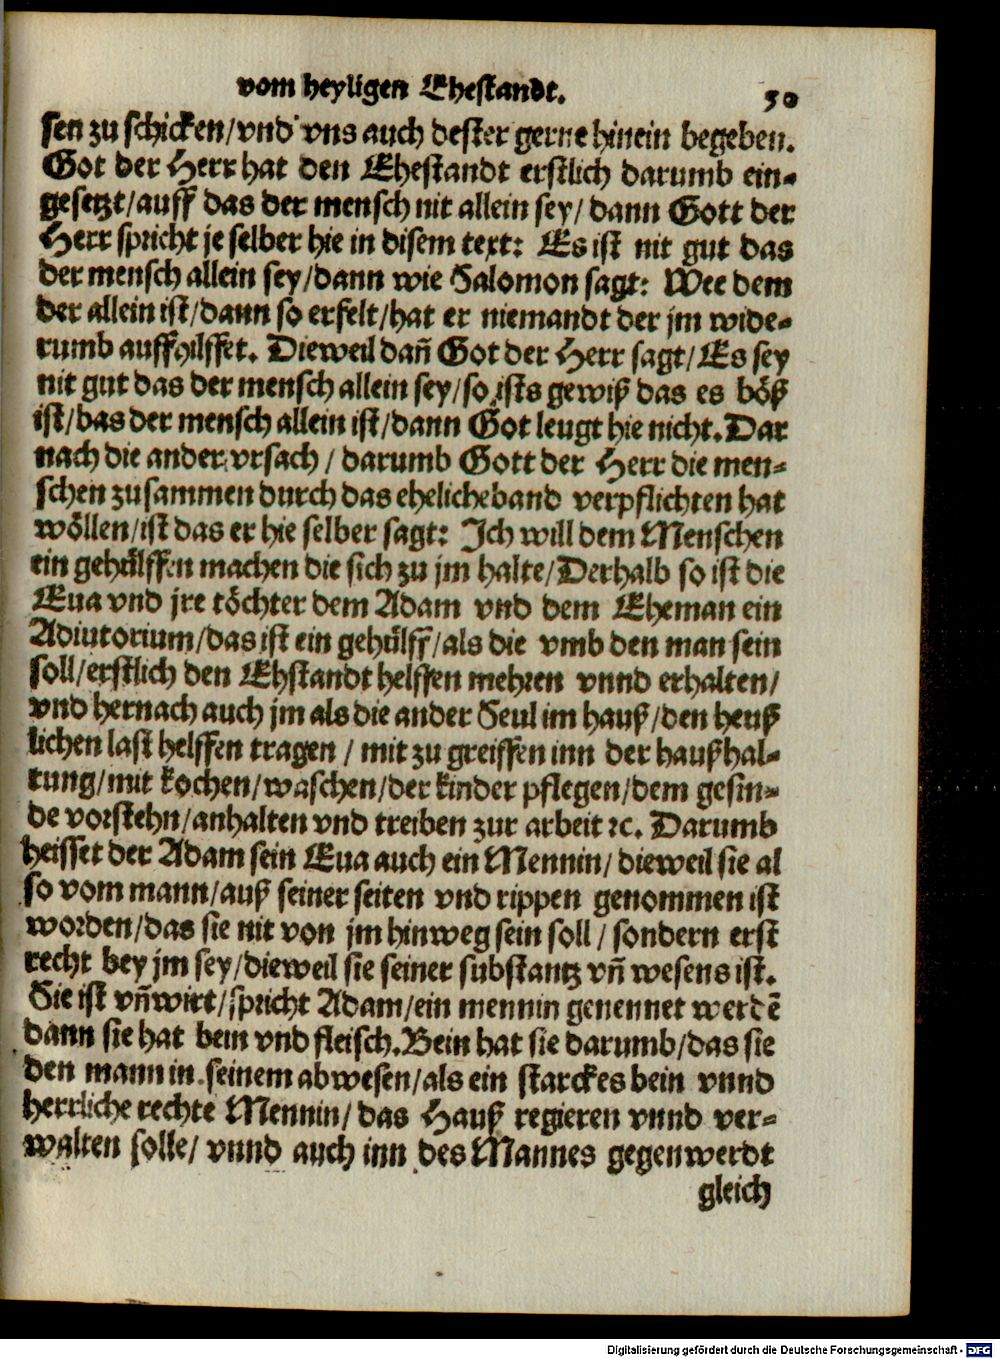 vom heyligen Ehestandt. 50
sen zu schicken/vnd vns auch dester gerne hinein begeben.
Got der Herr hat den Ehestandt erstlich darumb ein-
gesetzt/auff das der mensch nit allein sey/ dann Gott der
Herr spricht je selber hie in disem text: Es ist nit gut das
der mensch allein sey/dann wie Salomon sagt: Wee dem
der allein ist/dann so er felt/hat er niemandt der jm wide-
rumb auffhilffet. Dieweil dañ Got der Herr sagt/Es sey
nit gut das der mensch allein sey/so ists gewiß das es böß
ist/das der mensch allein ist/dann Got leugt hie nicht. Dar
nach die ander vrsach/ darumb Gott der Herr die men-
schen zusammen durch das eheliche band verpflichten hat
wöllen/ist das er hie selber sagt: Ich will dem Menschen
ein gehülffen machen die sich zu jm halte/Derhalb so ist die
Eua vnd jre töchter dem Adam vnd dem Eheman ein
Adiutorium/das ist ein gehülff/als die vmb den man sein
soll/erstlich den Ehstandt helffen mehren vnnd erhalten/
vnd hernach auch jm als die ander Seul im hauß/den heuß
lichen last helffen tragen/ mit zu greiffen inn der haußhal-
tung/mit kochen/waschen/der kinder pflegen/dem gesin-
de vorstehn/anhalten vnd treiben zur arbeit ꝛc. Darumb
heisset der Adam sein Eua auch ein Mennin/ dieweil sie al
so vom mann/auß seiner seiten vnd rippen genommen ist
worden/das sie nit von jm hinweg sein soll/ sondern erst
recht bey jm sey/dieweil sie seiner substantz vñ wesens ist.
Sie ist vñ wirt/spricht Adam/ein mennin genennet werdē
dann sie hat bein vnd fleisch. Bein hat sie darumb/das sie
den mann in seinem abwesen/als ein starckes bein vnnd
herrliche rechte Mennin/ das Hauß regieren vnnd ver-
walten solle/ vnnd auch inn des Mannes gegenwerdt
gleich
Digitalisierung gefördert durch die Deutsche Forschungsgemeinschaft - DFG